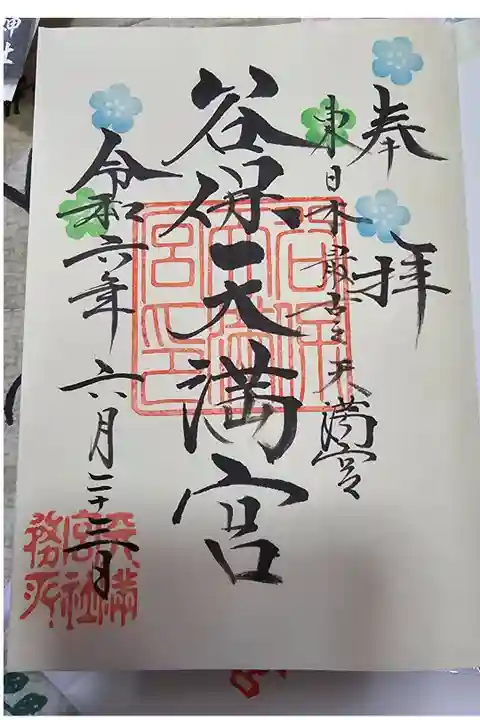 奉拝
東日本最古之天満宮
谷保天満宮
令和六年六月二十三日
谷保天満宮印
天満宮社務所
神社